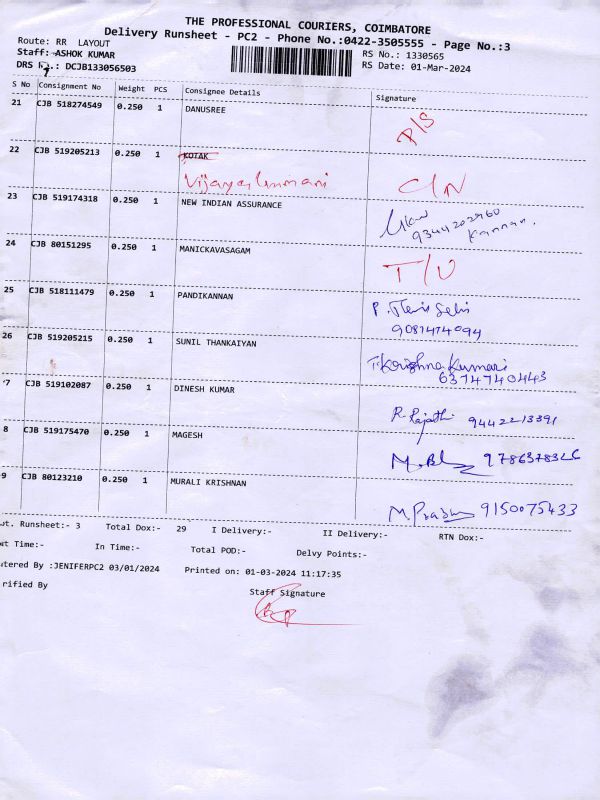 THE PROFESSIONAL COURIERS, COIMBATORE
Delivery Runsheet - PC2 - Phone No.:0422-3505555 - Page No.:3
Route: RR LAYOUT
RS No.: 1330565
Staff: ASHOK KUMAR
RS Date: 01-Mar-2024
DRS No.: DCJB133056503
S No Consignment No Weight PCS Consignee Details Signature
21 CJB 518274549 0.250 1 DANUSREE P/S
22 CJB 519205213 0.250 1 KOTAK
C/N
23 CJB 519174318 0.250 1 NEW INDIAN ASSURANCE
9344202960
Kannan.
24 CJB 80151295 0.250 1 MANICKAVASAGAM T/U
25 CJB 518111479 0.250 1 PANDIKANNAN P. Selvi
9081474094
26 CJB 519205215 0.250 1 SUNIL THANKAIYAN T.Krishna Kumari
6374740443
7 CJB 519102087 0.250 1 DINESH KUMAR R. Rajathi 9442213391
8 CJB 519175470 0.250 1 MAGESH
9 CJB 80123210 0.250 1 MURALI KRISHNAN M. 9150075433
ot. Runsheet:- 3 Total Dox:- 29 I Delivery:- II Delivery:- RTN Dox:-
ut Time:- In Time:- Total POD:- Delvy Points:-
tered By :JENIFERPC2 03/01/2024 Printed on: 01-03-2024 11:17:35
rified By
Staff Signature